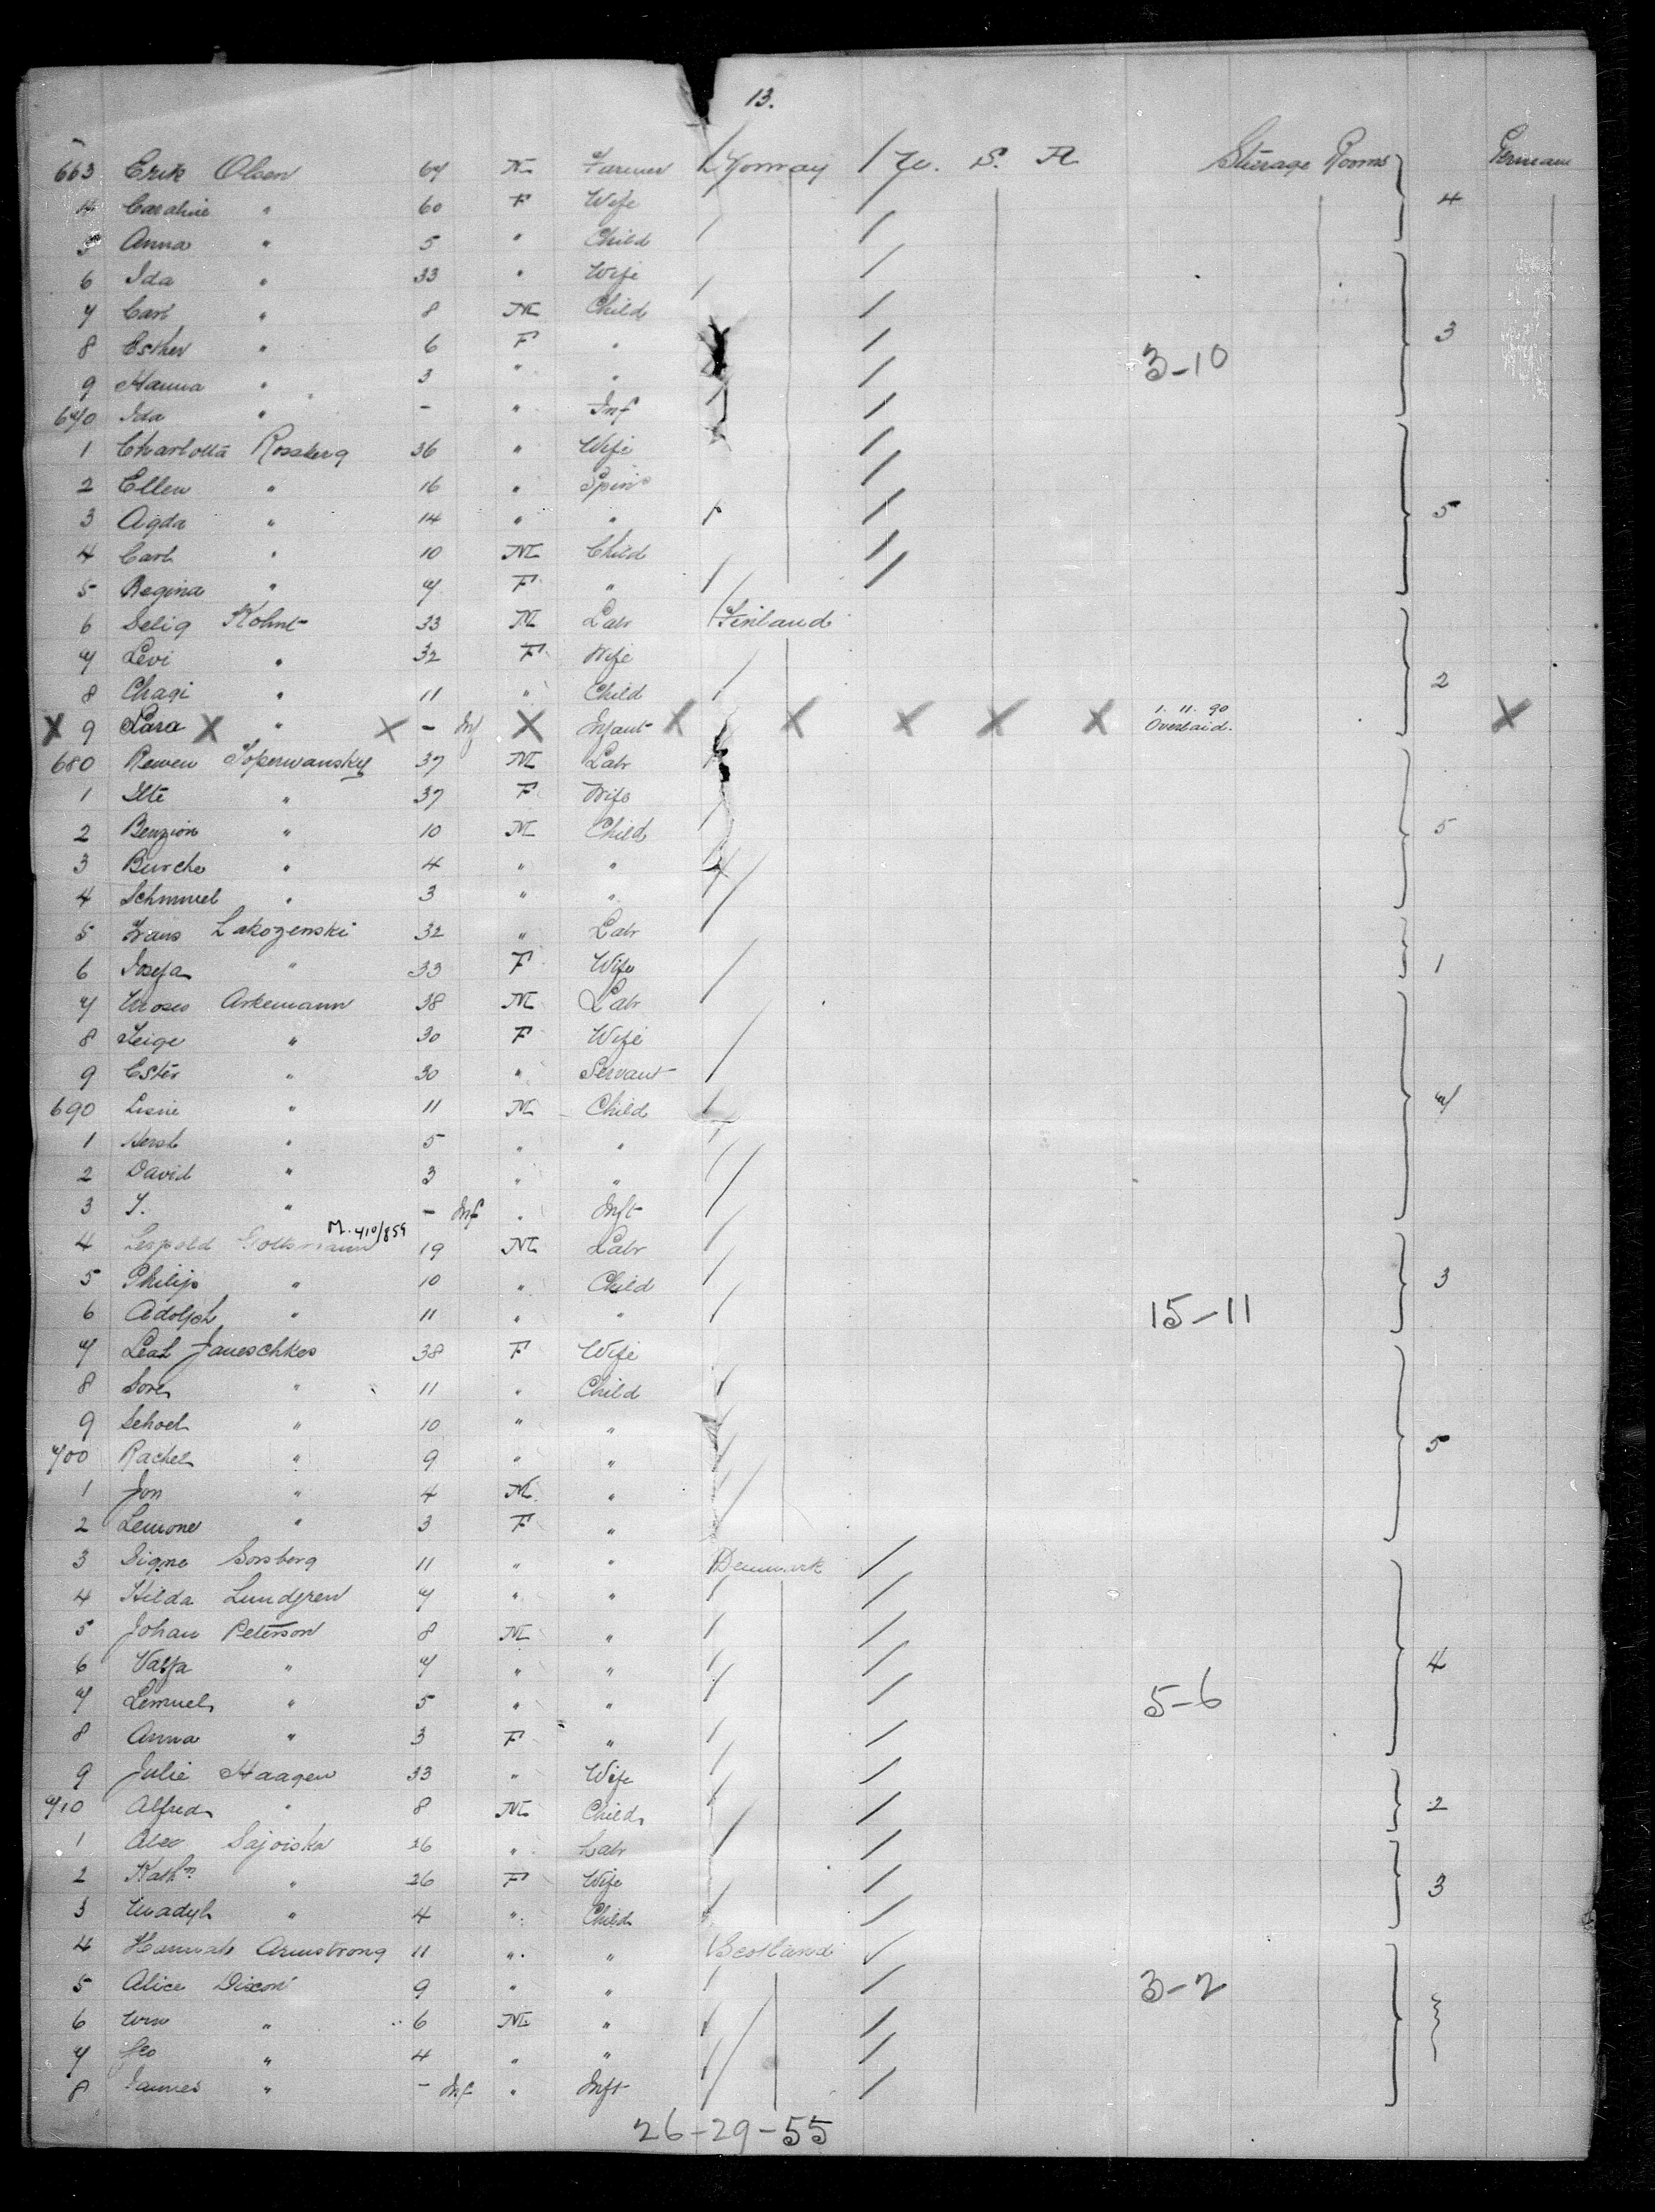 13.
663 Erik Olsen 64 M Farmer Norway U. S. A Steerage Rooms Permanent
4 Caroline " 60 F Wife 4
5 Anna " 5 " Child
6 Ida " 33 " Wife
7 Carl " 8 M Child
8 Esther " 6 F " 3 3-10
9 Hanna " 3 " "
670 Ida " - " Inf
1 Charlotta Rossberg 36 " Wife
2 Ellen " 16 " Spin
3 Agda " 14 " " 5
4 Carl " 10 M Child
5 Regina " 7 F "
6 Selig Kohnt 33 M Labr Finland
7 Levi " 32 F Wife
8 Chagi " 11 " Child 2
X 9 Sara X " X - Inf X Infant X X X X X 1. 11. 90 Overlaid. X
680 Rewen 37 M Labr
1 Itte " 37 F Wife
2 Benzion " 10 M Child 5
3 Burche " 4 " "
4 Schmuel " 3 " "
5 Frans Lakozenski 32 " Labr
6 Josefa " 33 F Wife 1
7 Moses Arkemann 38 M Labr
8 Feige " 30 F Wife
9 Ester " 30 " Servant
690 " 11 M Child 7
1 Hersh " 5 " "
2 David " 3 " "
3 " - Inf " Inft
M. 410/859
4 Leopold 19 M Labr
5 Philip " 10 " Child 3
6 Adolph " 11 " " 15-11
7 Leah Janeschkes 38 F Wife
8 Sore " 11 " Child
9 Schoel " 10 " "
700 Rachel " 9 " " 5
1 Jon " 4 M "
2 Lemone " 3 F "
3 Signe Sorsberg 11 " " Denmark
4 Hilda Lundgren 7 " "
5 Johan Peterson 8 M "
6 " 7 " " 4
7 Lemuel " 5 " " 5-6
8 Anna " 3 F "
9 Julie Haagen 33 " Wife
710 Alfred " 8 M Child 2
1 Alex Sajoiska 26 " Labr
2 Kathn " 26 F Wife 3
3 " 4 " Child
4 Hannah Armstrong 11 " " Scotland
5 Alice Dixon 9 " " 3-2
6 Wm " 6 M "
7 Geo " 4 " "
8 James " - Inf " Inft
26-29-55